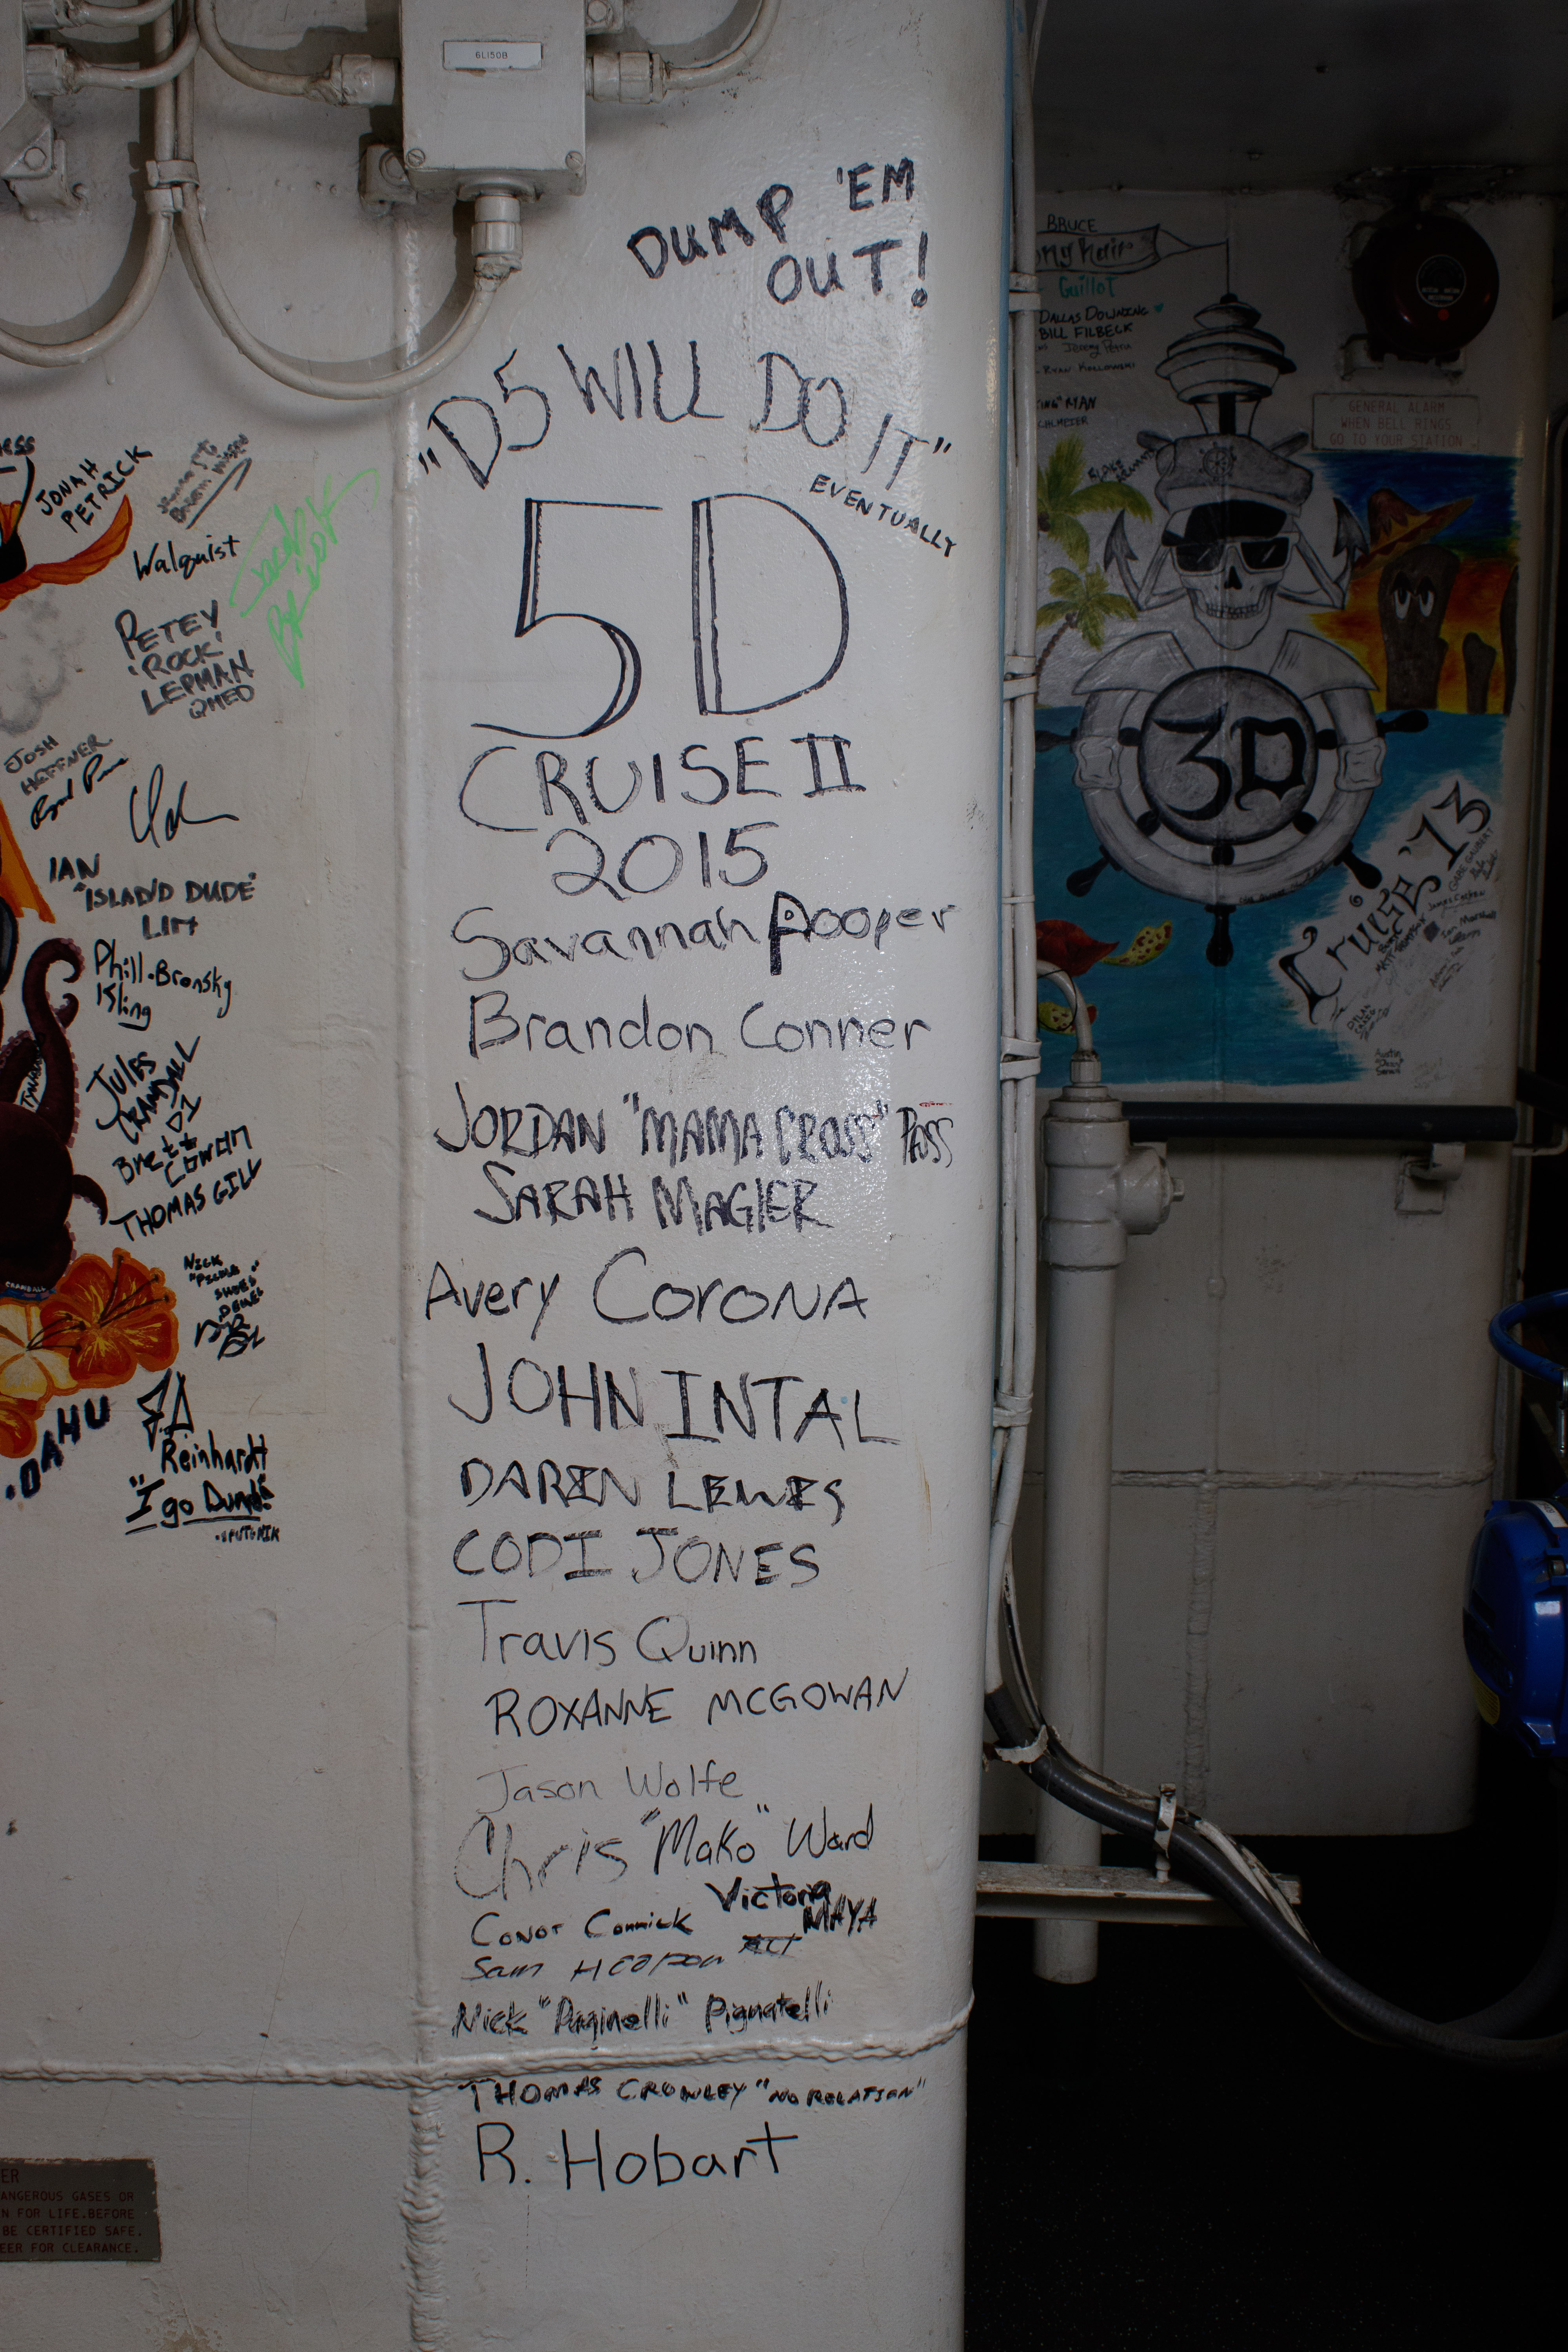 6L150B
DUMP 'EM
OUT!
"D5 WILL DO IT"
EVENTUALLY
5D
CRUISE II
2015
Savannah Pooper
Brandon Conner
JORDAN "MAMA CROSS" PASS
SARAH MAGIER
Avery CORONA
JOHN INTAL
DAREN LEWIS
CODI JONES
Travis Quinn
ROXANNE MCGOWAN
Jason Wolfe
Chris "Mako" Ward
Victoria
MAYA
Conor Cormick
Sam
Nick "Paginelli" Pignatelli
THOMAS CROWLEY "NO RELATION"
R. Hobart
JONAH
PETRICK
Walquist
PETEY
'ROCK'
LEPMAN
QMED
JOSH
HEFFNER
IAN
"ISLAND DUDE"
LIM
Phill.Bronsky
Kling
JULES
CRANDALL
DI
Brett
COWAN
THOMAS GILL
NICK
SHOES"
CRANDALL
OAHU
Reinhardt
"I go Dumb!"
ER
ANGEROUS GASES OR
N FOR LIFE.BEFORE
BE CERTIFIED SAFE.
EER FOR CLEARANCE.
BRUCE
ong hair
Guillot
DALLAS DOWNING
BILL FILBECK
Jeremy
RYAN KOZLOWSKI
RYAN
GENERAL ALARM
WHEN BELL RINGS
GO TO YOUR STATION
3D
Cruise '13
Marshall
DYLAN
Austin